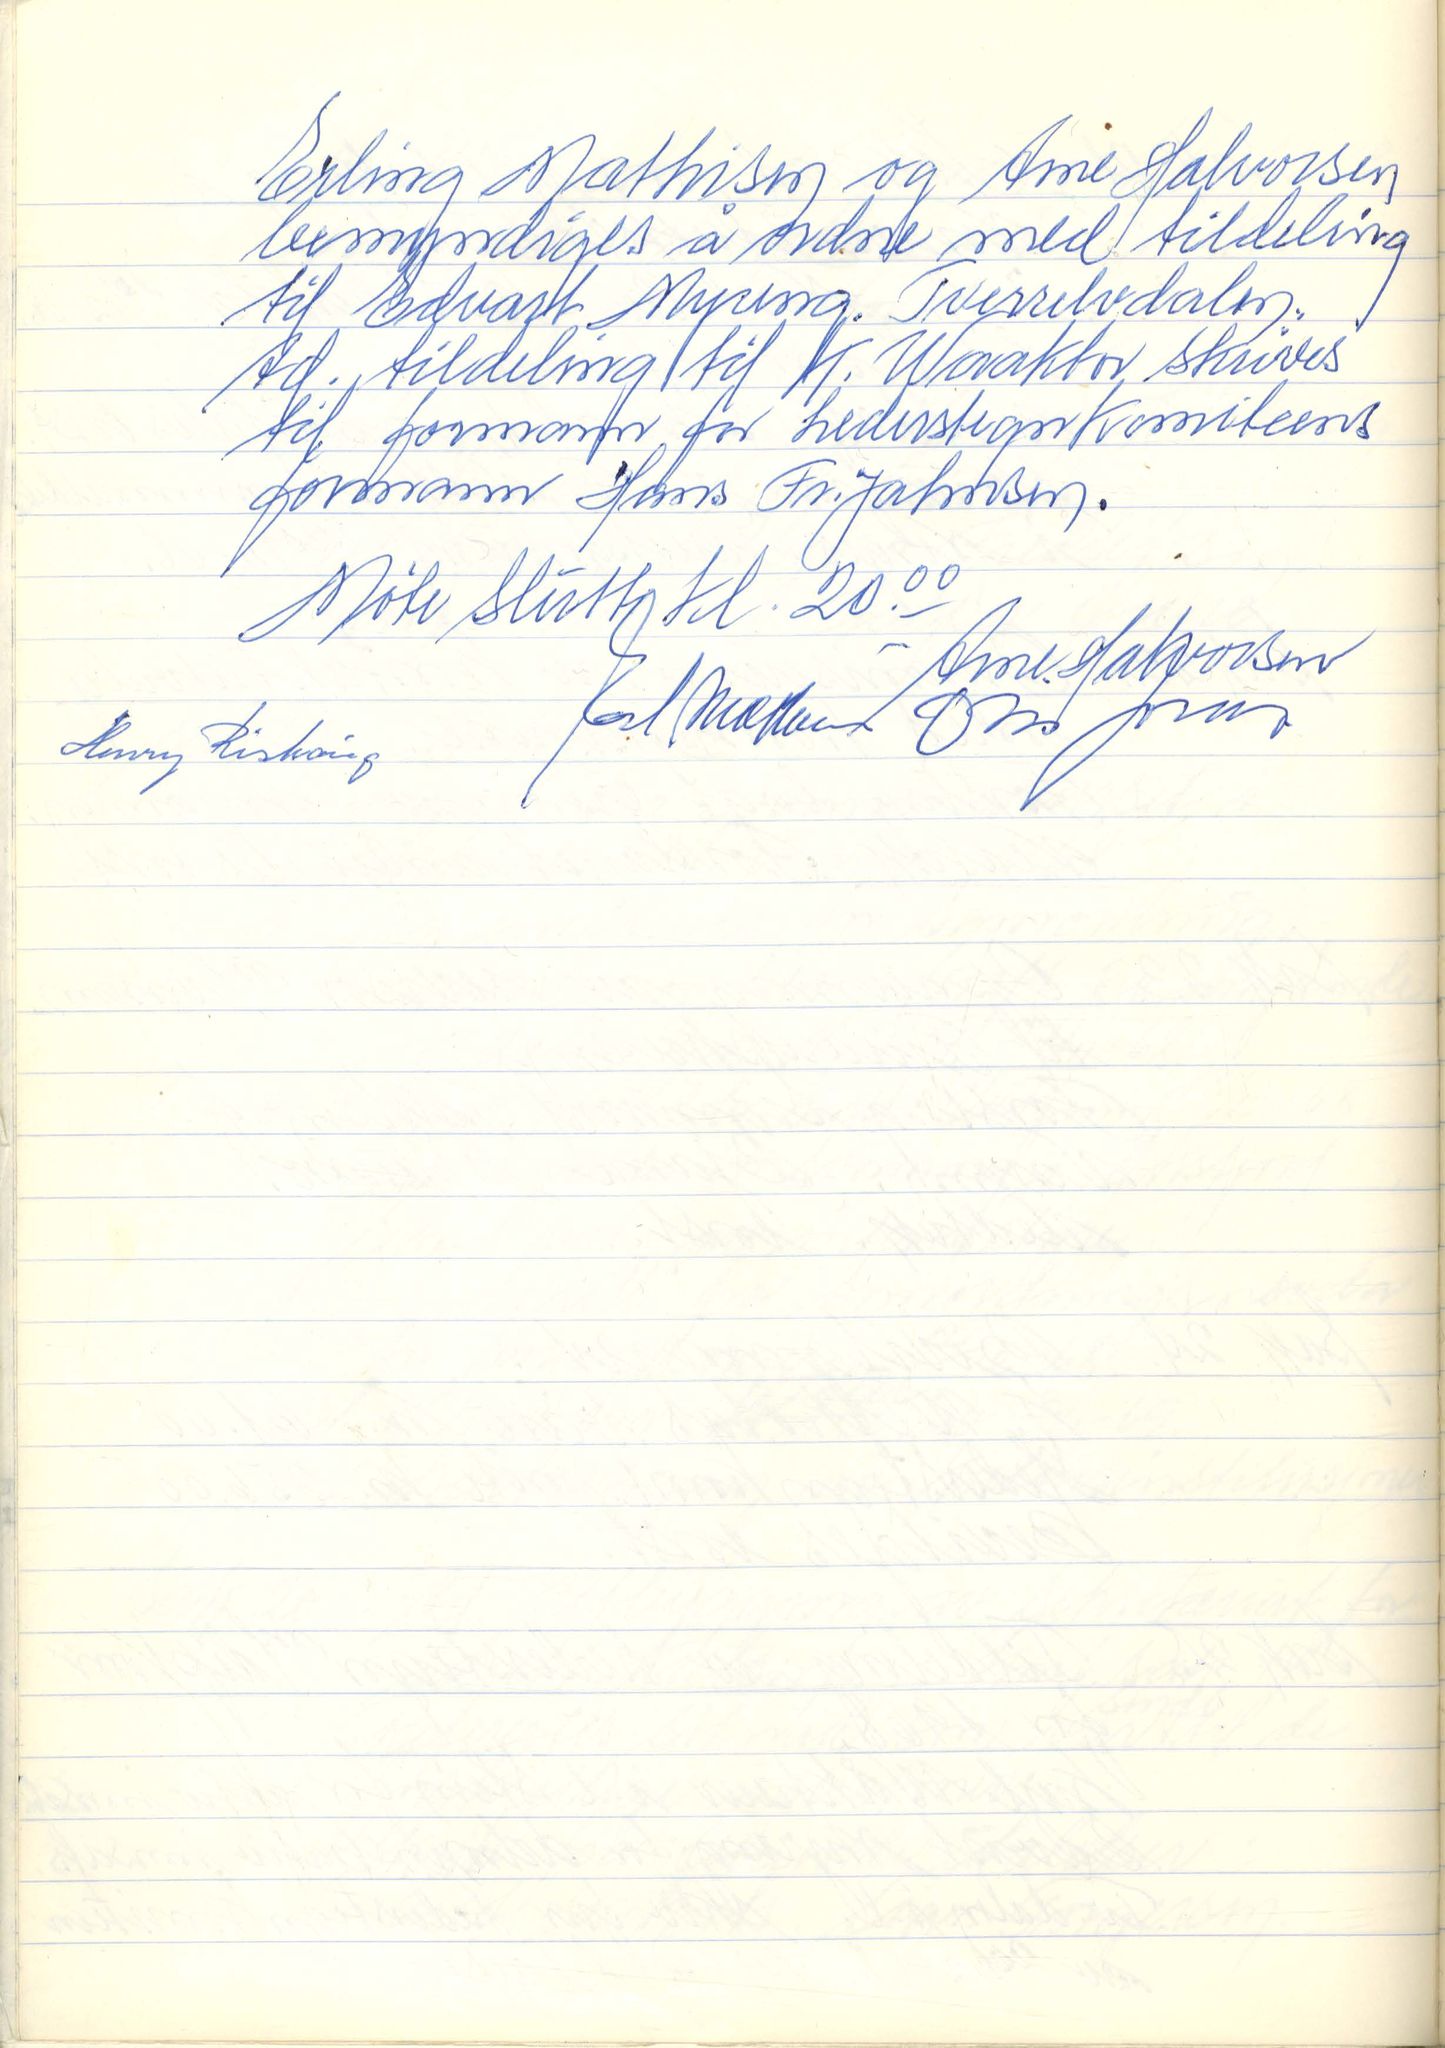 Erling Mathisen og Arne Halvorsen
bemyndiges å ordne med tildeling
til Edvart Myreng. Tverrelvdalen.
Ad. tildeling til K. Waaktor skrives
til formann for hederstegnkomiteens
formann Hans Fr. Jahnsen.
Møte slutt kl. 20.00
Arne Halvorsen
Henry Riskaug